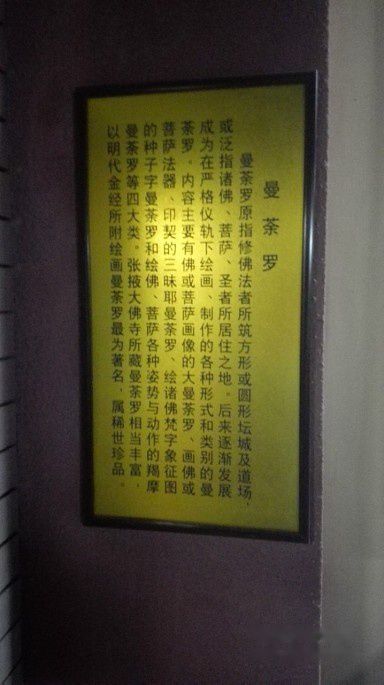 曼荼罗
曼荼罗原指修佛法者所筑方形或圆形坛城及道场，
或泛指诸佛、菩萨、圣者所居住之地。后来逐渐发展
成为在严格仪轨下绘画、制作的各种形式和类别的曼
荼罗。内容主要有佛或菩萨画像的大曼荼罗、画佛或
菩萨法器、印契的三昧耶曼荼罗、绘诸佛梵字象征图
的种子字曼荼罗和绘佛、菩萨各种姿势与动作的羯摩
曼荼罗等四大类。张掖大佛寺所藏曼荼罗相当丰富，
以明代金经所附绘画曼荼罗最为著名，属稀世珍品。